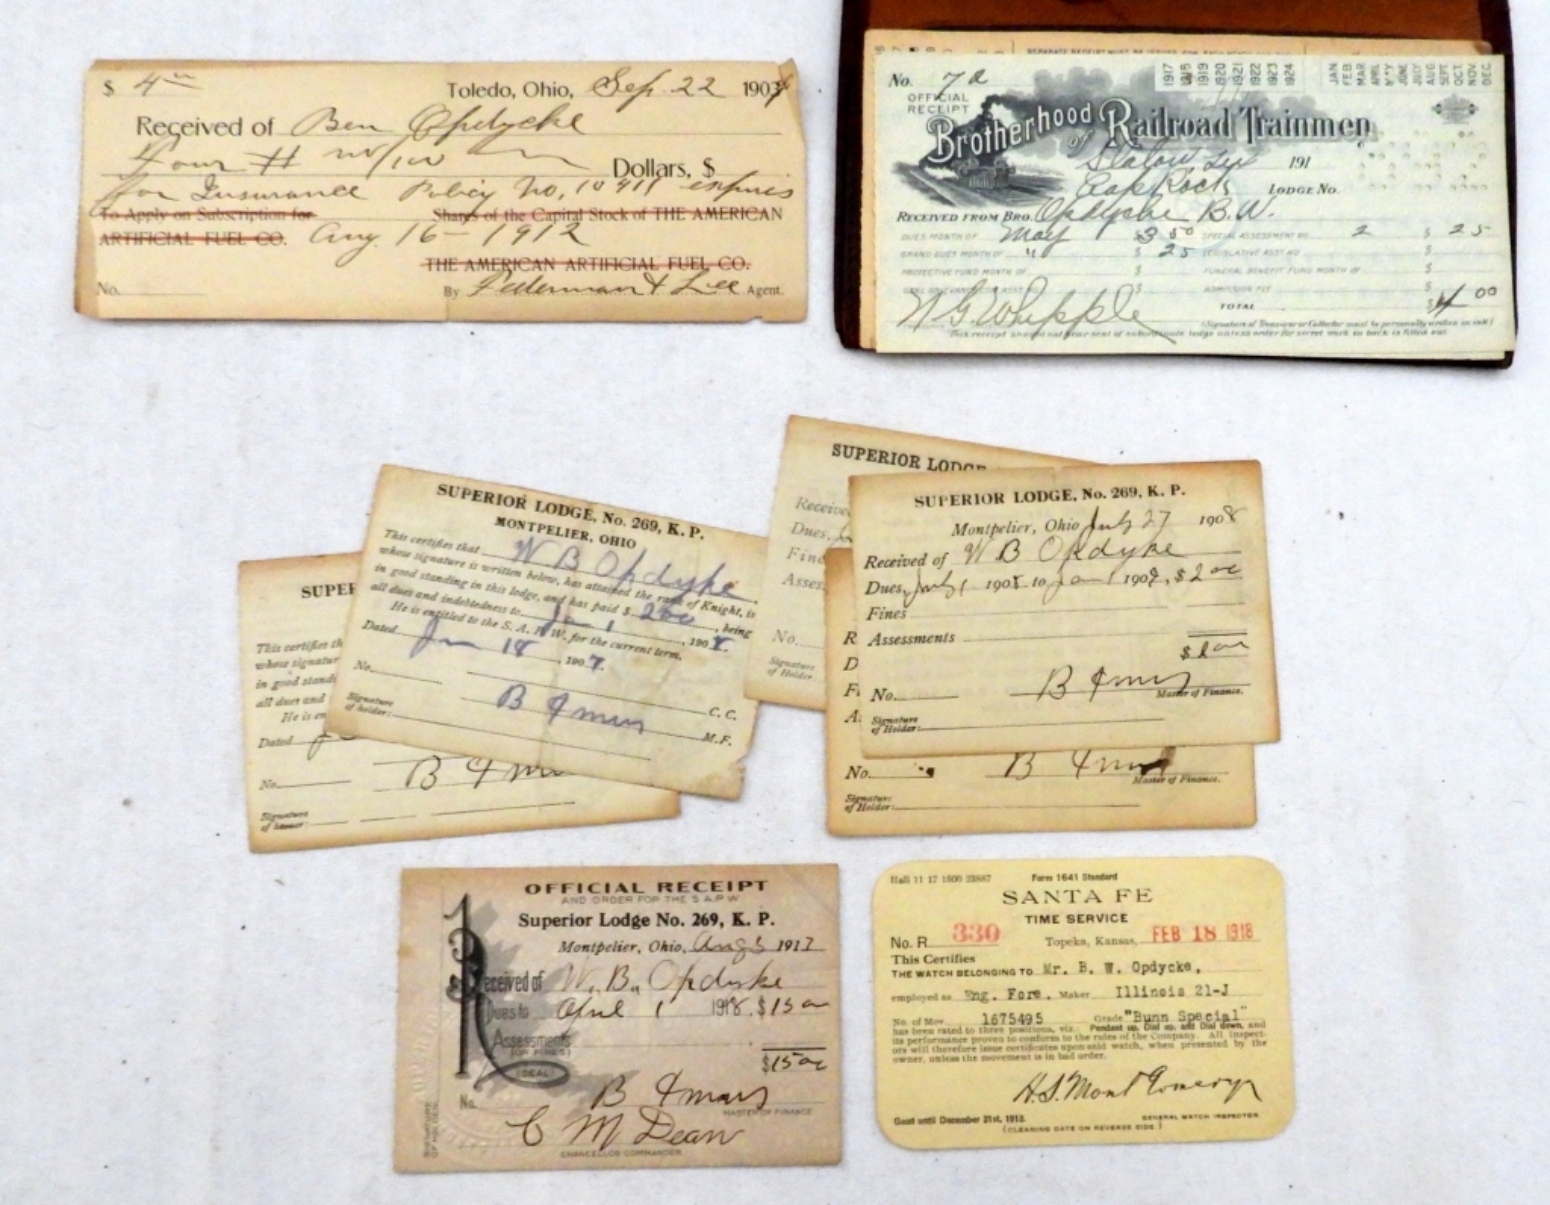 $ 4
Toledo, Ohio, Sep. 22 190
Received of Ben Opdycke
Four # no/100 Dollars, $
for Insurance Policy No, 10911 expires
To Apply on Subscription for Shares of the Capital Stock of THE AMERICAN
ARTIFICIAL FUEL CO. Aug. 16 - 1912
THE AMERICAN ARTIFICIAL FUEL CO.
No. By Federman & Lee Agent.
No. 7a
OFFICIAL
RECEIPT
1917 1918 1919 1920 1921 1922 1923 1924
JAN FEB. MAR APRIL MAY JUNE JULY AUG SEPT OCT. NOV DEC.
Brotherhood of Railroad Trainmen
191
Cap Rock LODGE NO.
RECEIVED FROM BRO. Opdyche B.W.
DUES MONTH OF May $3 50 SPECIAL ASSESSMENT NO. 2 $ 25
GRAND DUES MONTH OF " $ 25 LEGISLATIVE ASST NO. $
PROTECTIVE FUND MONTH OF $ FUNERAL BENEFIT FUND MONTH OF $
ADMISSION FEE $
TOTAL $4 00
W G Whipple
(Signature of Treasurer or Collector must be personally written in ink)
This receipt should not bear seal of subordinate lodge unless order for secret work on back is filled out
SUPERIOR LODGE, No. 269, K. P.
MONTPELIER, OHIO
This certifies that W B Opdyke
whose signature is written below, has attained the rank of Knight, is
in good standing in this lodge, and has paid $ 200, being
all dues and indebtedness to Jan 1, 1908.
He is entitled to the S. A. P. W. for the current term.
Dated Jan 18, 1907.
No.
C. C.
Signature
of holder: B F
M. F.
SUPER
This certifies th
whose signatur
in good stand
all dues and
He is en
Dated
No. B F
Signature
of
SUPERIOR LODGE
Receive
Dues,
Fine
Asses
No.
Signature
of Holder
SUPERIOR LODGE, No. 269, K. P.
Montpelier, Ohio July 27 1908
Received of W B Opdyke
Dues, July 1 1908 to Jan 1 1909, $2 00
Fines
Assessments
No. B F
Master of Finance.
Signature
of Holder:
R
D
F
A
No. B F
Master of Finance.
Signature
of Holder:
OFFICIAL RECEIPT
AND ORDER FOR THE S A P W
Superior Lodge No. 269, K. P.
Montpelier, Ohio, Aug 3 1917
Received of W. B. Opdyke
Dues to April 1 1918. $15 00
Assessments
(OR FINES)
$15 00
(SEAL)
No. B F
MASTER OF FINANCE
C M Dean
CHANCELLOR COMMANDER
SIGNATURE
OF HOLDER
Hall 11 17 1500 23887 Form 1641 Standard
SANTA FE
TIME SERVICE
No. R 330 Topeka, Kansas, FEB 18 1918
This Certifies
THE WATCH BELONGING TO Mr. B. W. Opdycke,
employed as Eng. Fore. Maker Illinois 21-J
No. of Mov. 1675495 Grade "Bunn Special"
has been rated to three positions, viz. Pendant up, Dial up, and Dial down, and
its performance proven to conform to the rules of the Company. All inspect-
ors will therefore issue certificates upon said watch, when presented by the
owner, unless the movement is in bad order.
H.S. Montgomery
GENERAL WATCH INSPECTOR.
Good until December 31st, 1918.
(CLEANING DATE ON REVERSE SIDE.)